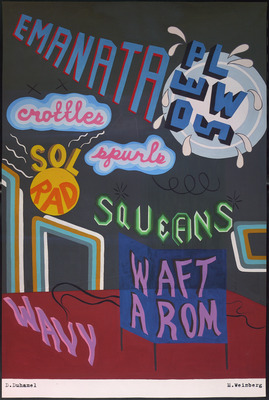 EMANATA
PLEWDS
crottles
spurls
SOL
RAD
SQUEANS
WAFT
AROM
WAVY
D.Duhamel
M.Weinberg